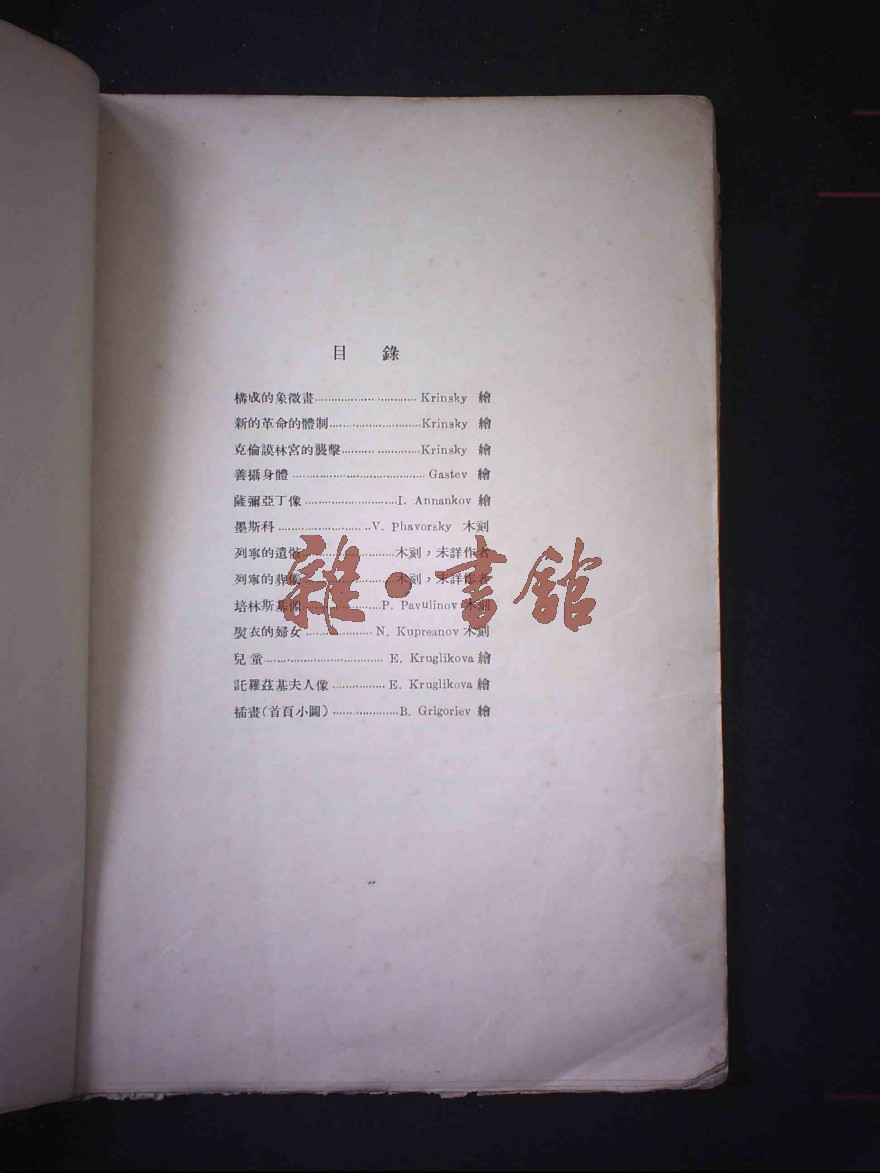 目 錄
構成的象徵畫................................. Krinsky 繪
新的革命的體制.............................Krinsky 繪
克倫謨林宮的襲擊.........................Krinsky 繪
善攝身體.......................................... Gastev 繪
薩彌亞丁像.............................I. Annankov 繪
墨斯科............................V. Phavorsky 木刻
列寧的遺骸.............................木刻，未詳作者
列寧的葬儀.............................木刻，未詳作者
培林斯基像........................P. Pavulinov 木刻
熨衣的婦女..................... N. Kupreanov 木刻
兒童...................................... E. Kruglikova 繪
託羅茲基夫人像................. E. Kruglikova 繪
插畫(首頁小圖).....................B. Grigoriev 繪
雜·書館